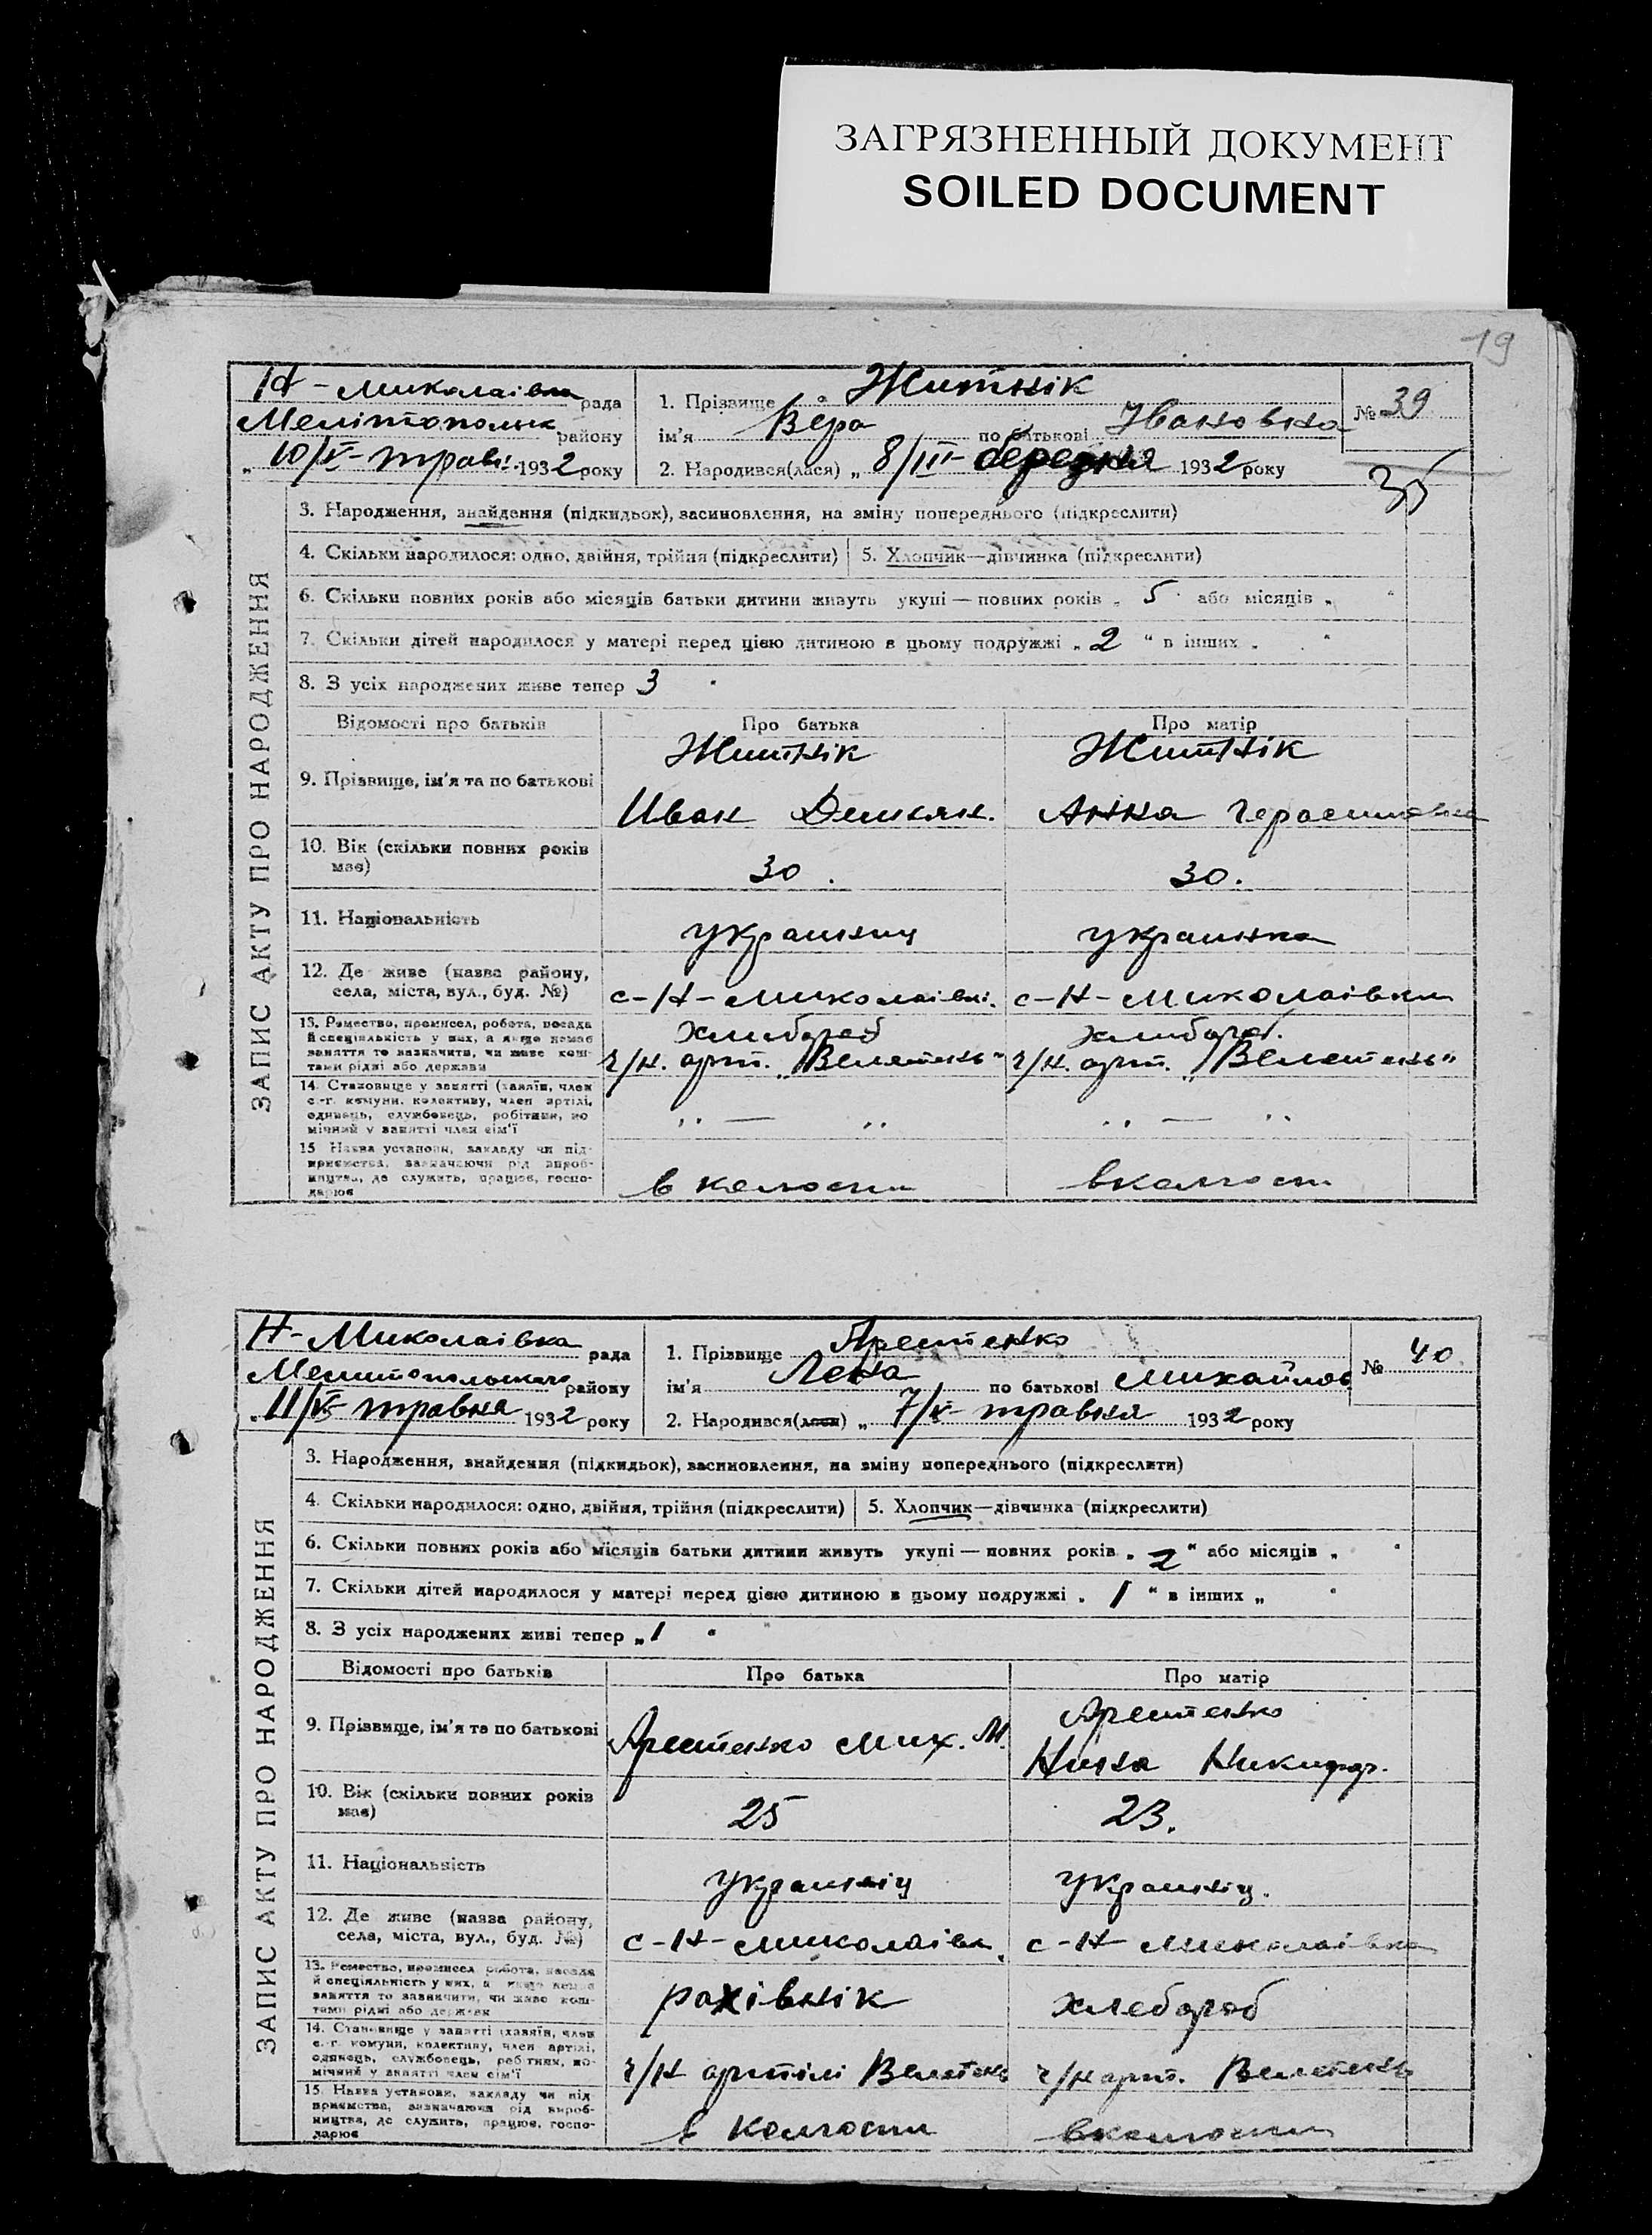 ЗАГРЯЗНЕННЫЙ ДОКУМЕНТ
SOILED DOCUMENT
19
ЗАПИС АКТУ ПРО НАРОДЖЕННЯ
Н-Миколаівка рада
Мелітопольск району
„10/V- травн. 1932 року
1. Прізвище Житнік
ім'я Вера по батькові Івановна
2. Народився(лася) „8/III- березня 1932 року
№ 39
35
3. Народження, знайдення (підкидьок), засиновлення, на зміну попереднього (підкреслити)
4. Скільки народилося: одно, двійня, трійня (підкреслити) 5. Хлопчик—дівчинка (підкреслити)
6. Скільки повних років або місяців батьки дитини живуть укупі — повних років „ 5 або місяців „ “
7. Скільки дітей народилося у матері перед цією дитиною в цьому подружжі „ 2 “ в інших „ “
8. З усіх народжених живе тепер 3
Відомості про батьків Про батька Про матір
9. Прізвище, ім'я та по батькові
Житнік
Иван Демьян.
Житнік
Анна Герасимовна
10. Вік (скільки повних років має) 30. 30.
11. Національність украинец украинка
12. Де живе (назва району, села, міста, вул., буд. №) с-Н-Миколаівк. с-Н-Миколаівки
13. Ремество, промисел, робота, посада й спеціяльність у них, а якщо немає заняття то зазначити, чи живе коштами рідні або держави
хлибороб
ч/н. арт. „Велетень“
хлибороб.
ч/н. арт. „Велетень“
14. Становище у занятті (хазяїн, член с.-г. комуни, колективу, член артілі, одинець, службовець, робітник, помічний у занятті член сім'ї
„ — „ „ — „
15. Назва установи, закладу чи підприємства, зазначаючи рід виробництва, де служить, працює, господарює
в колгоспи вколгосп
ЗАПИС АКТУ ПРО НАРОДЖЕННЯ
Н-Миколаівка рада
Мелитопольского району
„11/V- травня 1932 року
1. Прізвище Яретенко
ім'я Лена по батькові Михайлов
2. Народився(лася) „7/V- травня 1932 року
№ 40
3. Народження, знайдення (підкидьок), засиновлення, на зміну попереднього (підкреслити)
4. Скільки народилося: одно, двійня, трійня (підкреслити) 5. Хлопчик—дівчинка (підкреслити)
6. Скільки повних років або місяців батьки дитини живуть укупі — повних років „ 2 “ або місяців „ “
7. Скільки дітей народилося у матері перед цією дитиною в цьому подружжі „ 1 “ в інших „ “
8. З усіх народжених живі тепер „ 1 “
Відомості про батьків Про батька Про матір
9. Прізвище, ім'я та по батькові
Яретенко Мих. М.
Яретенко
Нина Никифор.
10. Вік (скільки повних років має) 25 23.
11. Національність украиніц украиніц.
12. Де живе (назва району, села, міста, вул., буд. №) с-Н-Миколаівк. с-Н-Миколаівка
13. Ремество, промисел, робота, посада й спеціяльність у них, а якщо немає заняття то зазначити, чи живе коштами рідні або держави
рахівнік хлебороб
14. Становище у занятті (хазяїн, член с.-г. комуни, колективу, член артілі, одинець, службовець, робітник, помічний у занятті член сім'ї
ч/н артілі Велетень ч/н арт. Велетень
15. Назва установи, закладу чи підприємства, зазначаючи рід виробництва, де служить, працює, господарює
в колгоспи вколгоспи